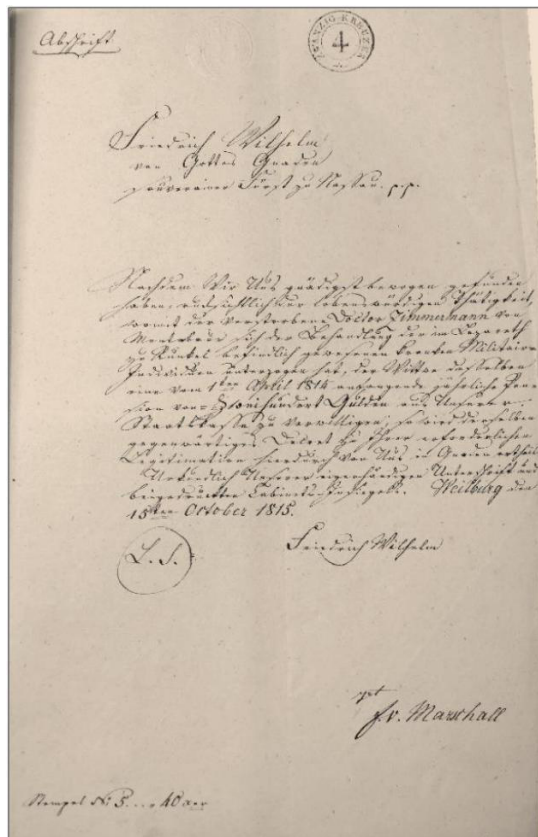 Abschrift
ZWANZIG KREUZER
4
Friedrich Wilhelm
von Gottes Gnaden
souverainer Fürst zu Nassau. p.p.
Nachdem Wir Uns gnädigst bewogen gefunden
haben, rücksichtlich der lobenswürdigen Thätigkeit,
womit der verstorbene Doctor Zimmermann von
sich der Behandlung der im Lazareth
zu Runkel befindlich gewesenen kranken Militair-
Individuen unterzogen hat, der Wittwe desselben
eine vom 1ten April 1814 anfangende jährliche Pen-
sion von Gulden aus Unserer
Staats Kasse zu verwilligen, so wird derselben
gegenwärtiges Decret zu Ihrer erforderlichen
Legitimation hierdurch von Uns in Gnaden ertheilt.
Urkundlich Unserer eigenhändigen Unterschrift und
beigedruckten Cabinets Insiegels. Weilburg den
15ten October 1815.
L. S.
Friedrich Wilhelm
f. v. Marschall
Stempel 40 xer